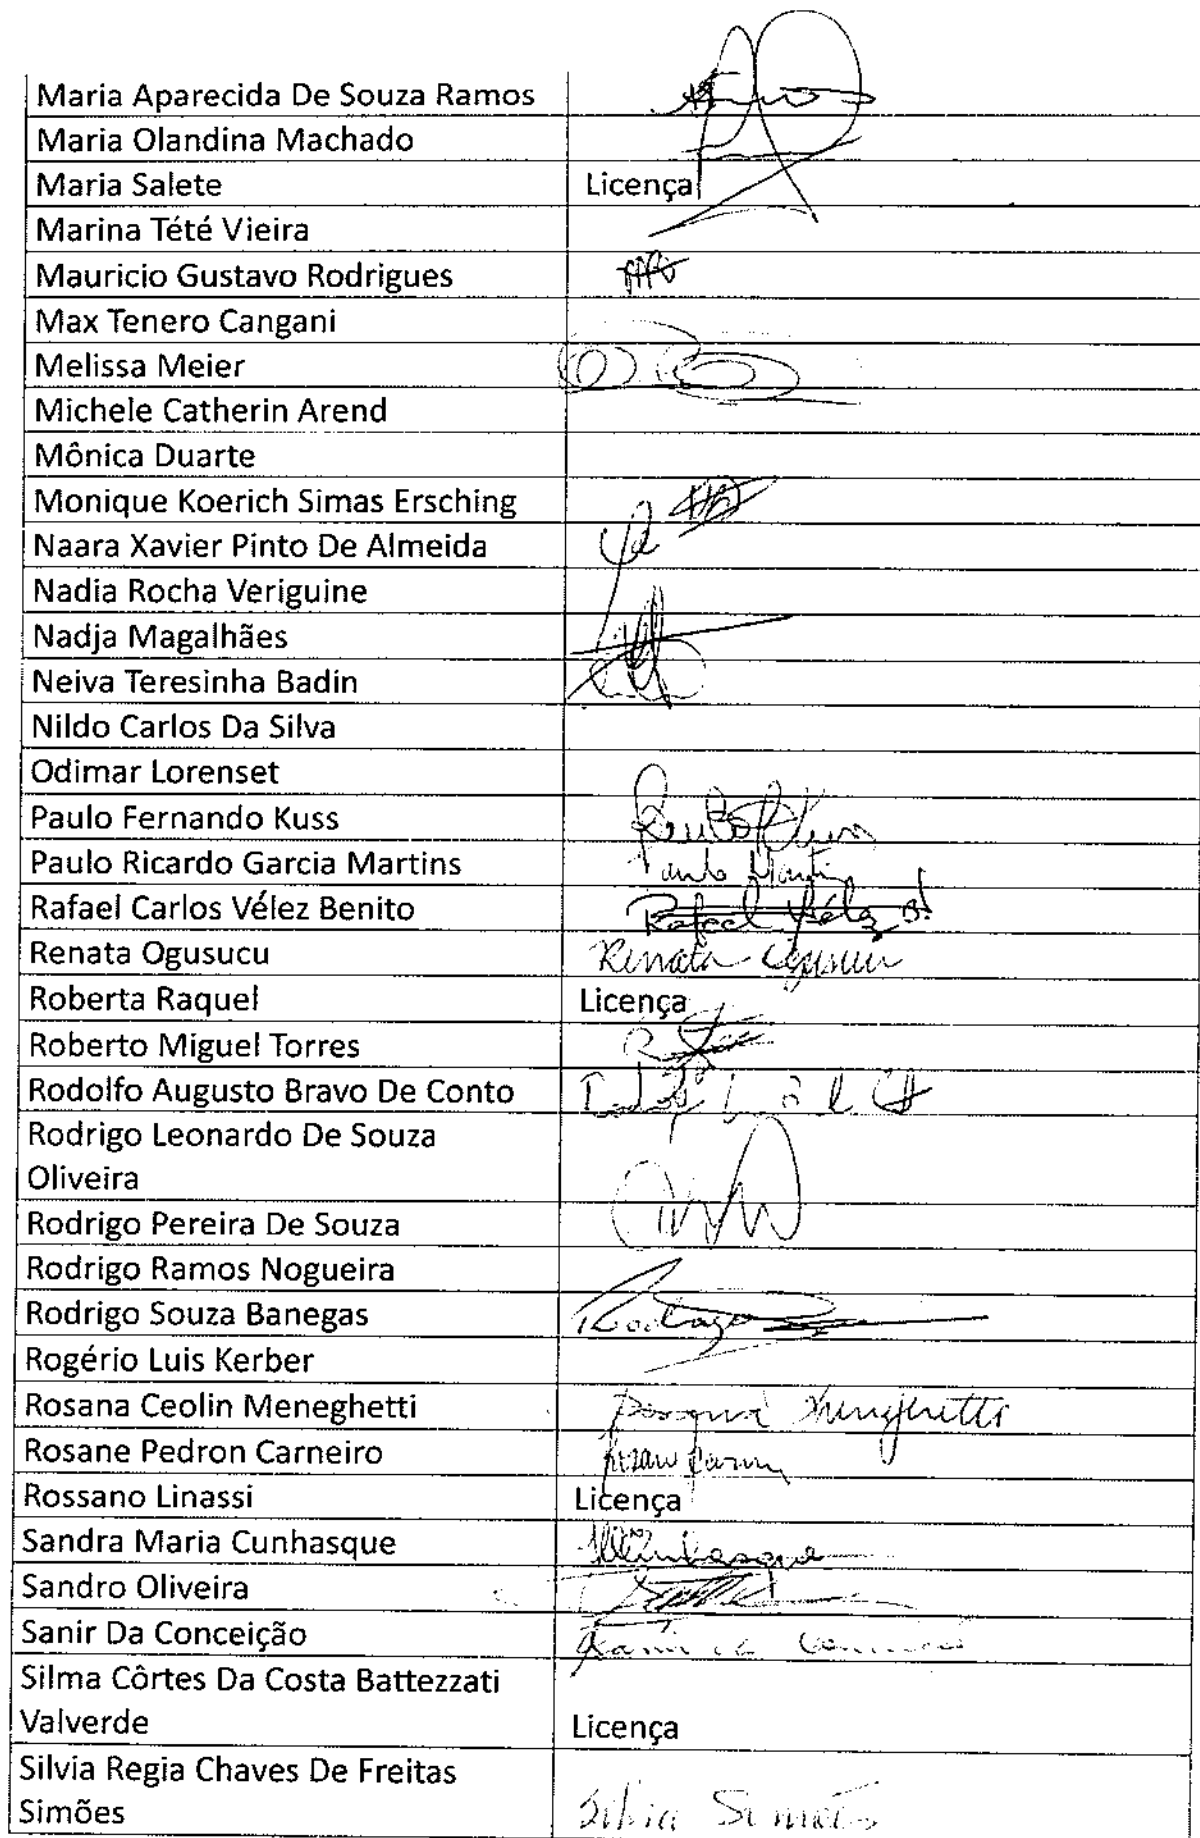 Maria Aparecida De Souza Ramos
Maria Olandina Machado
Maria Salete Licença
Marina Tété Vieira
Mauricio Gustavo Rodrigues
Max Tenero Cangani
Melissa Meier
Michele Catherin Arend
Mônica Duarte
Monique Koerich Simas Ersching
Naara Xavier Pinto De Almeida
Nadia Rocha Veriguine
Nadja Magalhães
Neiva Teresinha Badin
Nildo Carlos Da Silva
Odimar Lorenset
Paulo Fernando Kuss
Paulo Ricardo Garcia Martins Paulo
Rafael Carlos Vélez Benito Rafael Vélez B.
Renata Ogusucu Renata Ogusucu
Roberta Raquel Licença
Roberto Miguel Torres
Rodolfo Augusto Bravo De Conto
Rodrigo Leonardo De Souza
Oliveira
Rodrigo Pereira De Souza
Rodrigo Ramos Nogueira
Rodrigo Souza Banegas Rodrigo
Rogério Luis Kerber
Rosana Ceolin Meneghetti Rosana Meneghetti
Rosane Pedron Carneiro
Rossano Linassi Licença
Sandra Maria Cunhasque
Sandro Oliveira
Sanir Da Conceição
Silma Côrtes Da Costa Battezzati
Valverde Licença
Silvia Regia Chaves De Freitas
Simões Silvia Simões